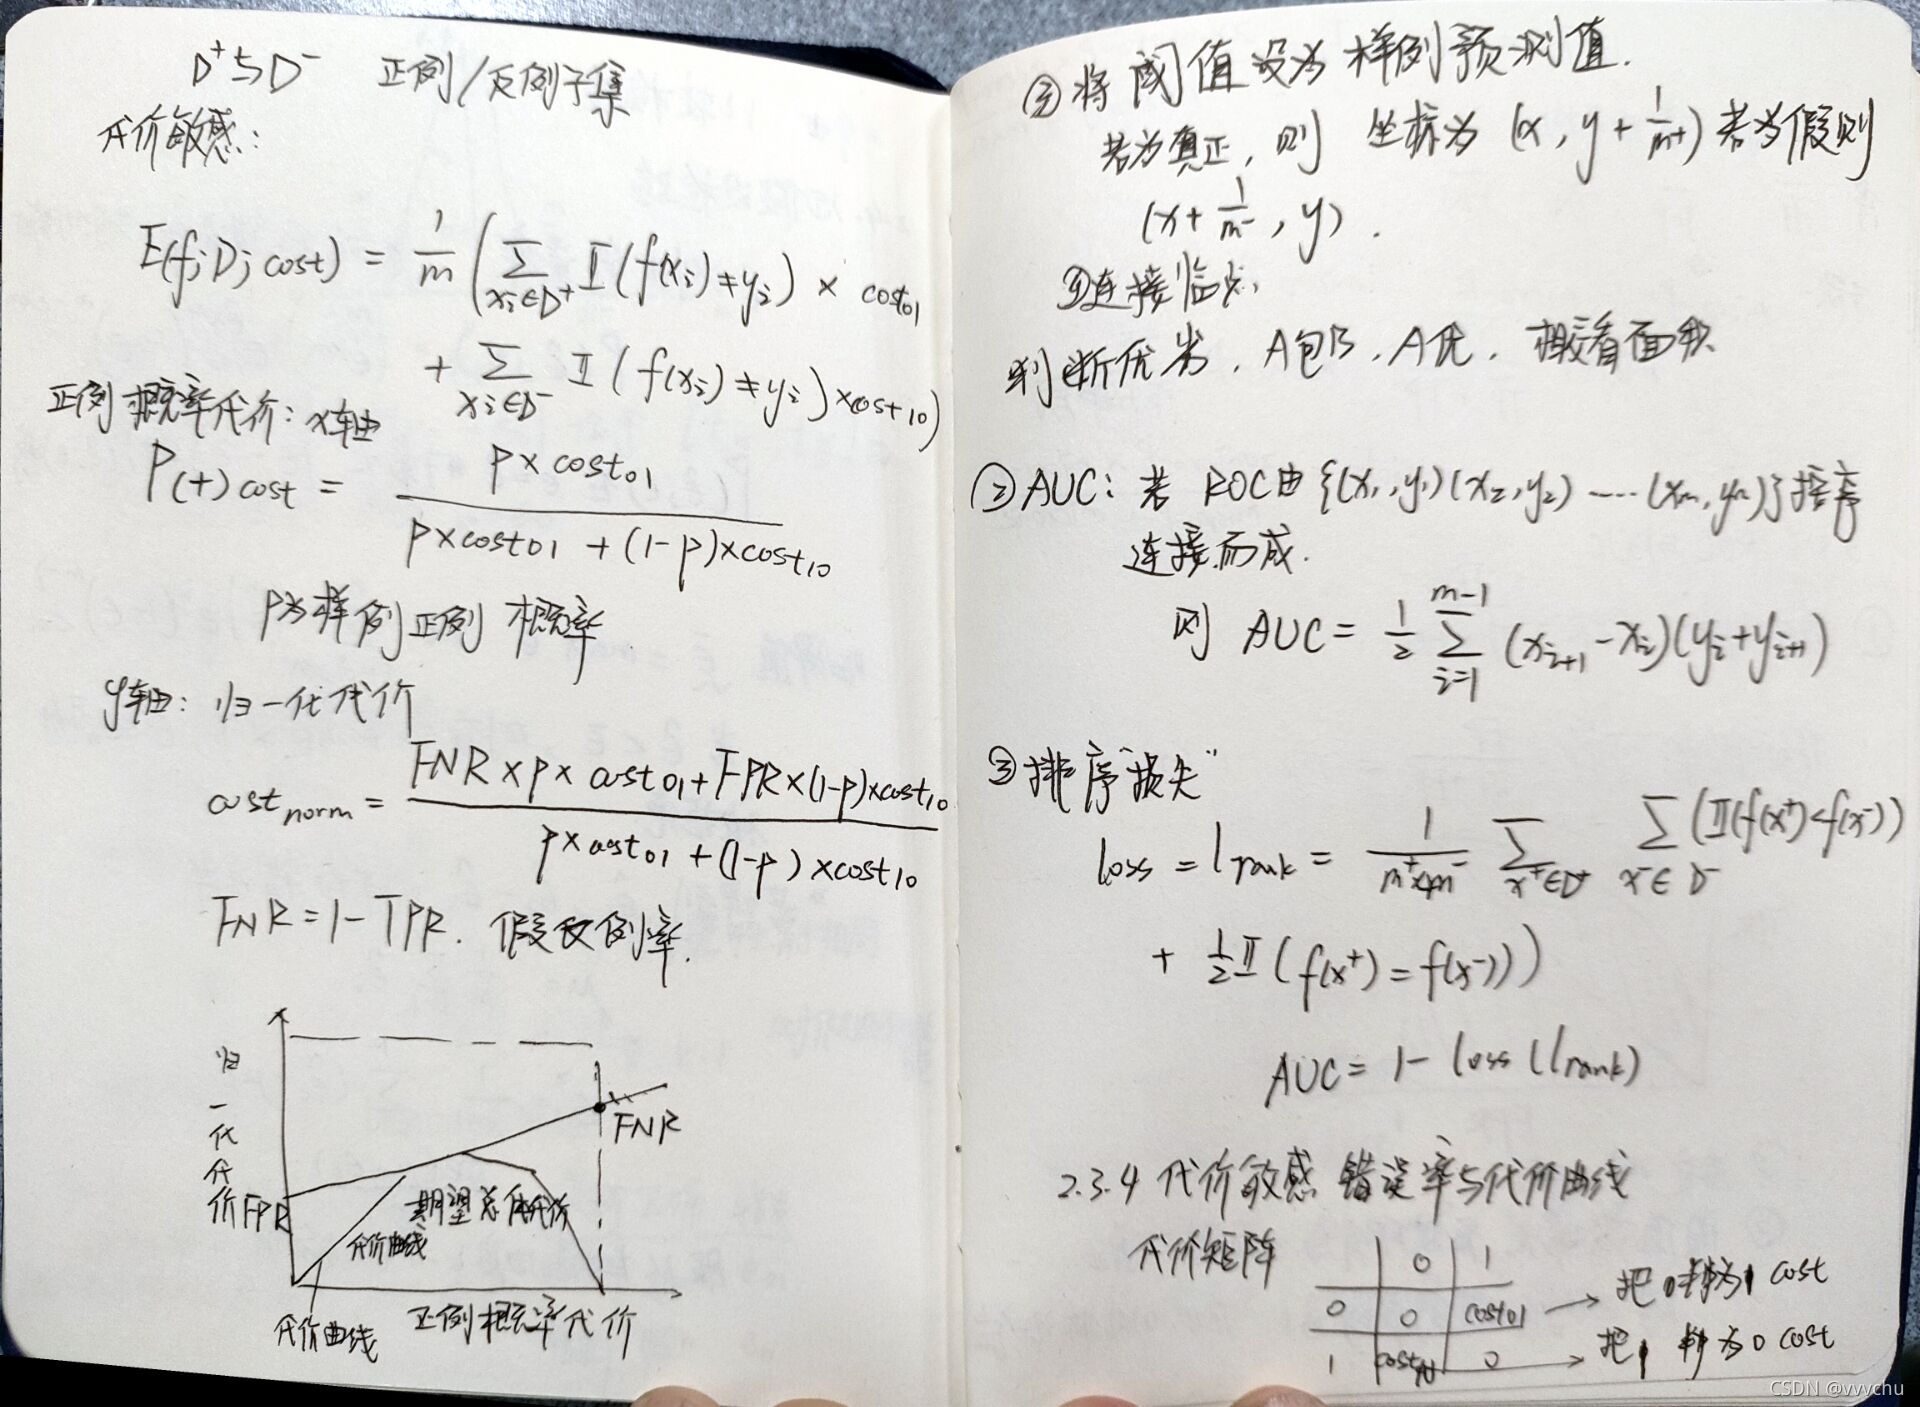 D⁺与D⁻ 正例/反例子集
代价敏感:
E(f;D;cost) = 1/m (∑_{xᵢ∈D⁺} 𝕀(f(xᵢ)≠yᵢ) × cost₀₁
+ ∑_{xᵢ∈D⁻} 𝕀(f(xᵢ)≠yᵢ)×cost₁₀)
正例概率代价: x轴
P(+)cost = p×cost₀₁ / p×cost₀₁ + (1-p)×cost₁₀
p为样例正例概率
y轴: 归一化代价
cost_norm = FNR×p×cost₀₁+FPR×(1-p)×cost₁₀ / p×cost₀₁+(1-p)×cost₁₀
FNR=1-TPR. 假反例率.
归一化代价
FPR
FNR
期望总体代价
代价曲线
代价曲线
正例概率代价
③将阈值设为样例预测值.
若为真正, 则 坐标为 (x, y+1/m⁺) 若为假则
(x+1/m⁻, y).
④连接临点,
判断优劣, A包B, A优, 相交看面积
②AUC: 若 ROC由{(x₁,y₁)(x₂,y₂)……(xₘ,yₘ)}按序
连接而成.
则 AUC = 1/2 ∑_{i=1}^{m-1} (x_{i+1}-xᵢ)(yᵢ+y_{i+1})
③排序"损失"
loss = l_rank = 1/m⁺×m⁻ ∑_{x⁺∈D⁺} ∑_{x⁻∈D⁻} (𝕀(f(x⁺)<f(x⁻))
+ 1/2 𝕀(f(x⁺)=f(x⁻)))
AUC = 1- loss (l_rank)
2.3.4 代价敏感 错误率与代价曲线
代价矩阵
0 1
0 0 cost₀₁ → 把0判为1 cost
1 cost₁₀ 0 → 把1判为0 cost
CSDN @vvvchu